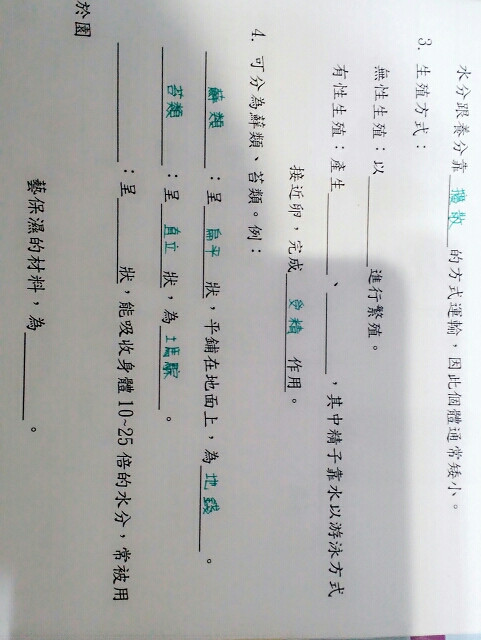 水分跟養分靠 擴散 的方式運輸，因此個體通常矮小。
3. 生殖方式：
無性生殖：以________進行繁殖。
有性生殖：產生________、________，其中精子靠水以游泳方式
接近卵，完成 受精 作用。
4. 可分為鮮類、苔類。例：
蘚類：呈 扁平 狀，平鋪在地面上，為 地錢 。
苔類：呈 直立 狀，為 土馬騌 。
________：呈________狀，能吸收身體 10~25 倍的水分，常被用
於園
藝保濕的材料，為________。